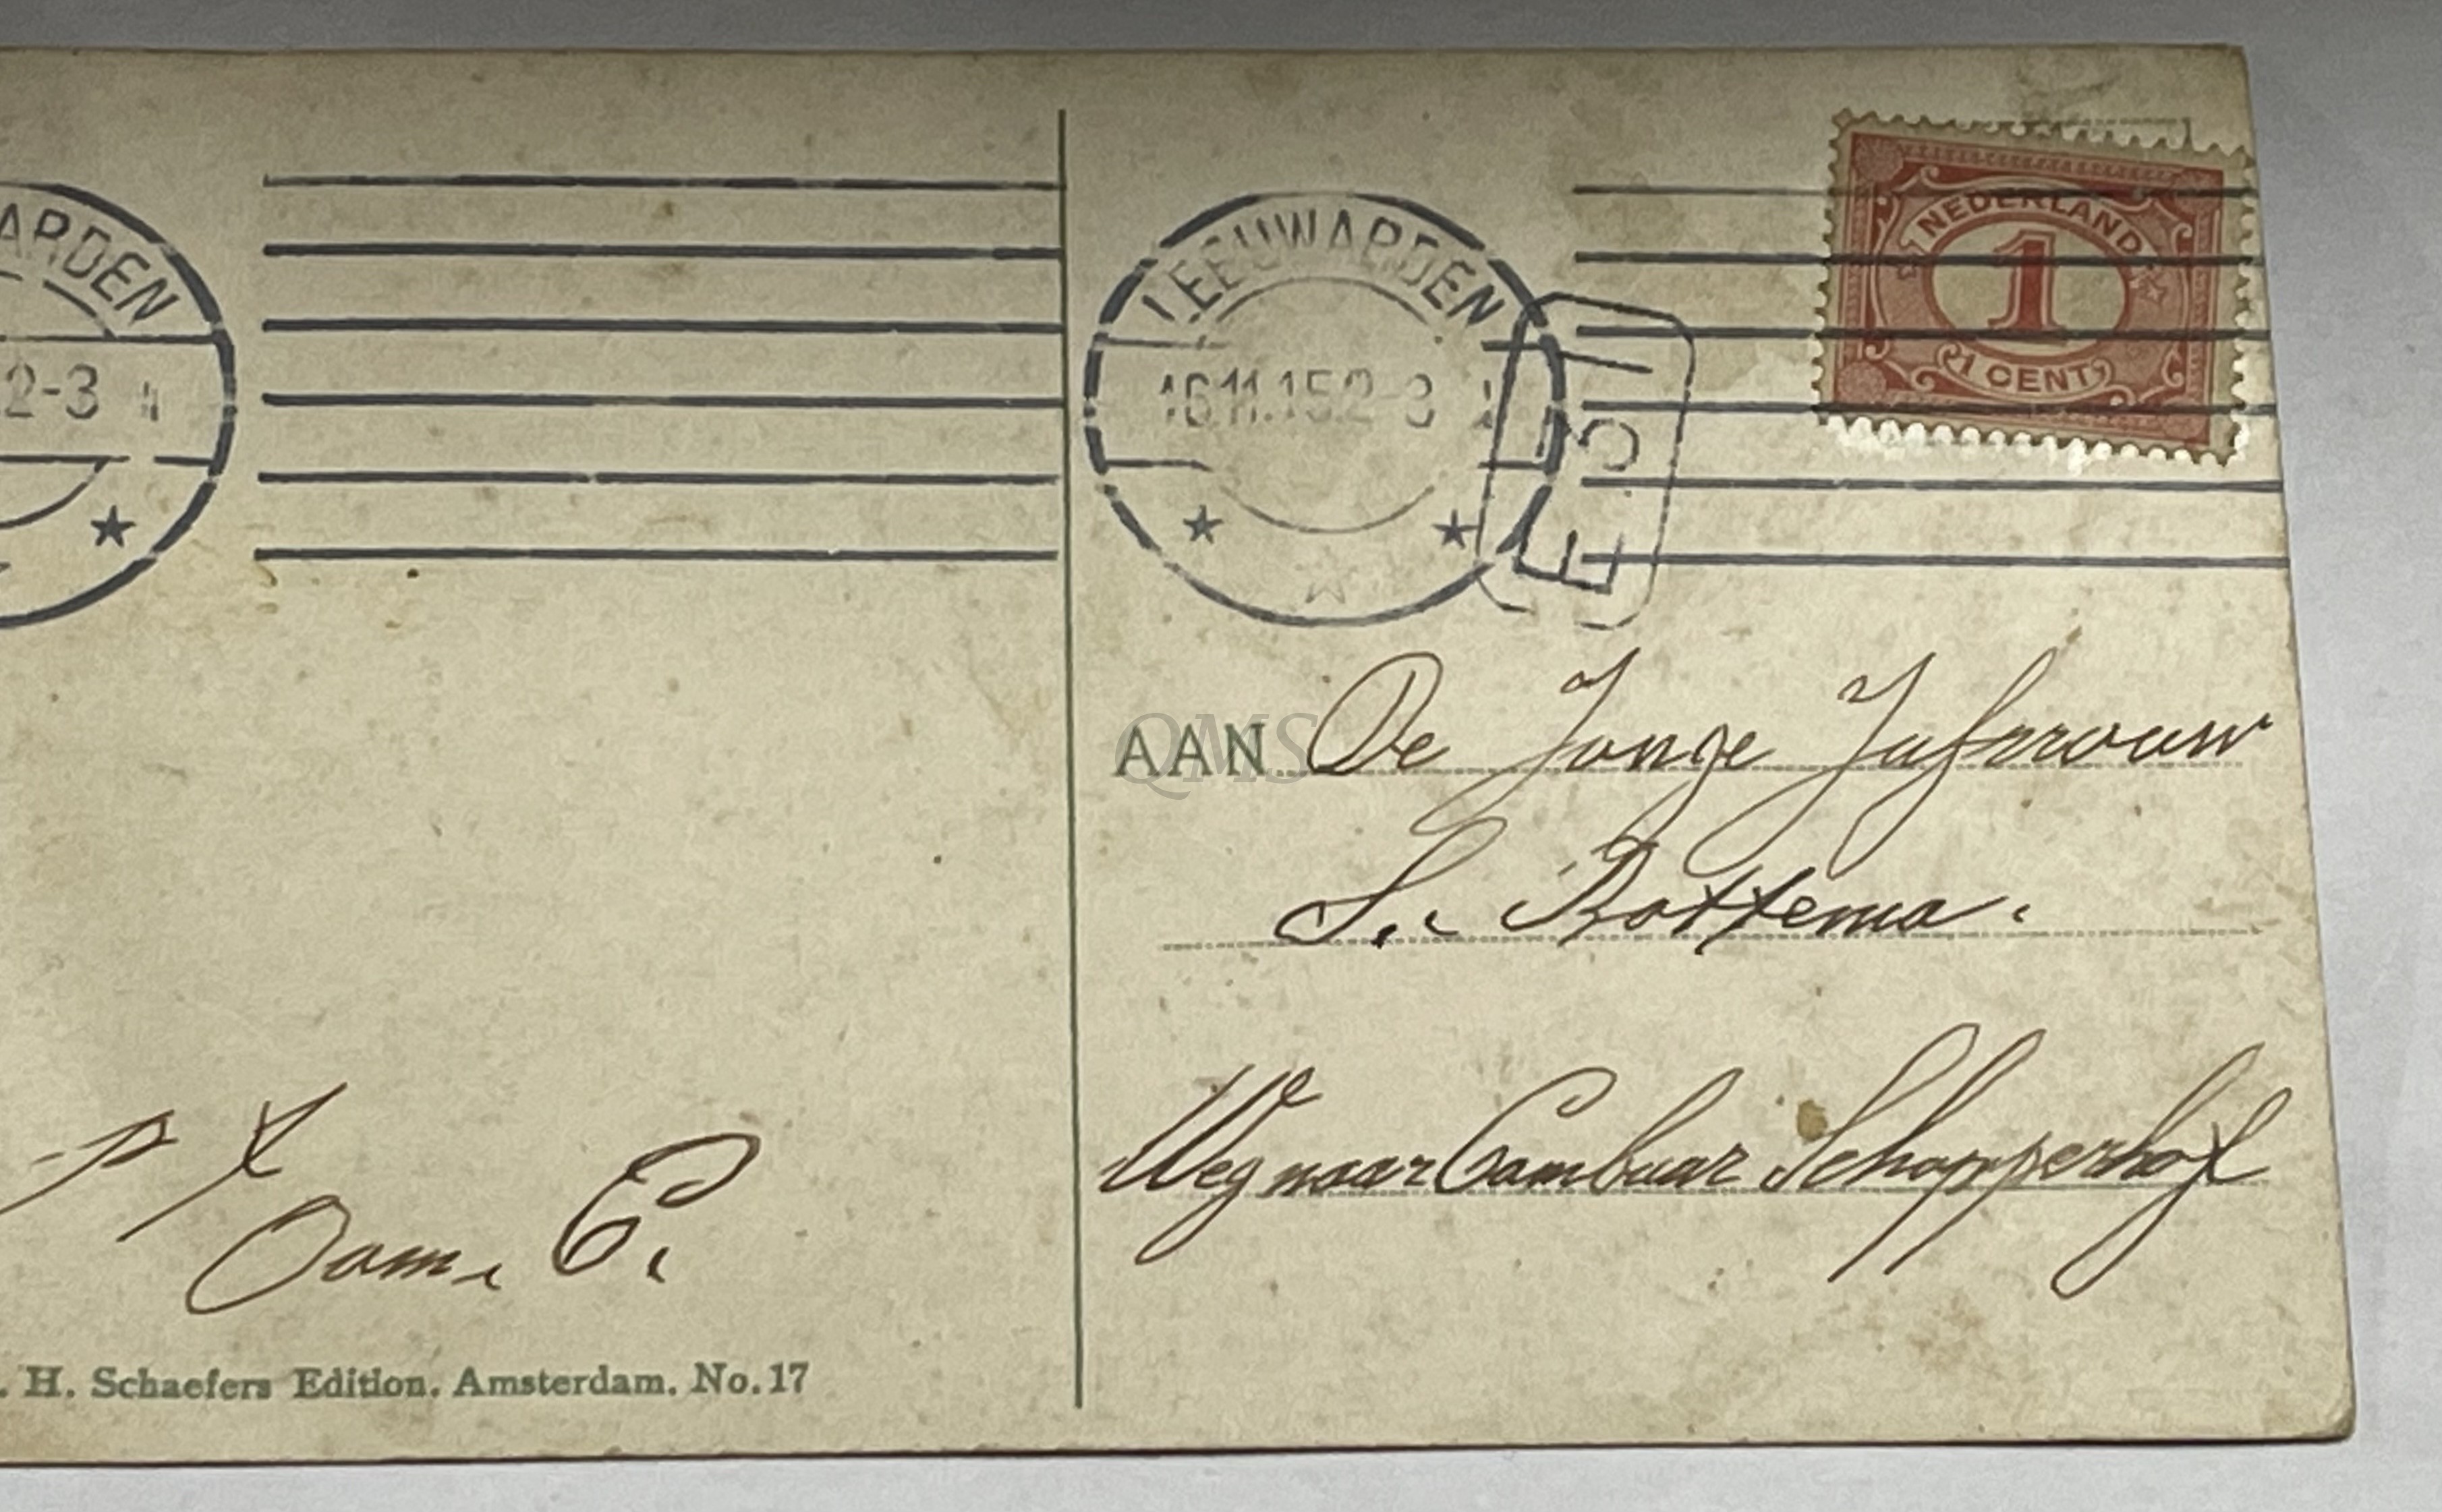 ARDEN
2-3
LEEUWARDEN
16.11.15.2-3
NEDERLAND
1
1 CENT
AAN De Jonge Jufvrouw
S. Bottema.
Weg naar Cambuur Schapperhof
p x
Oom. E.
. H. Schaefers Edition. Amsterdam. No. 17
QMS